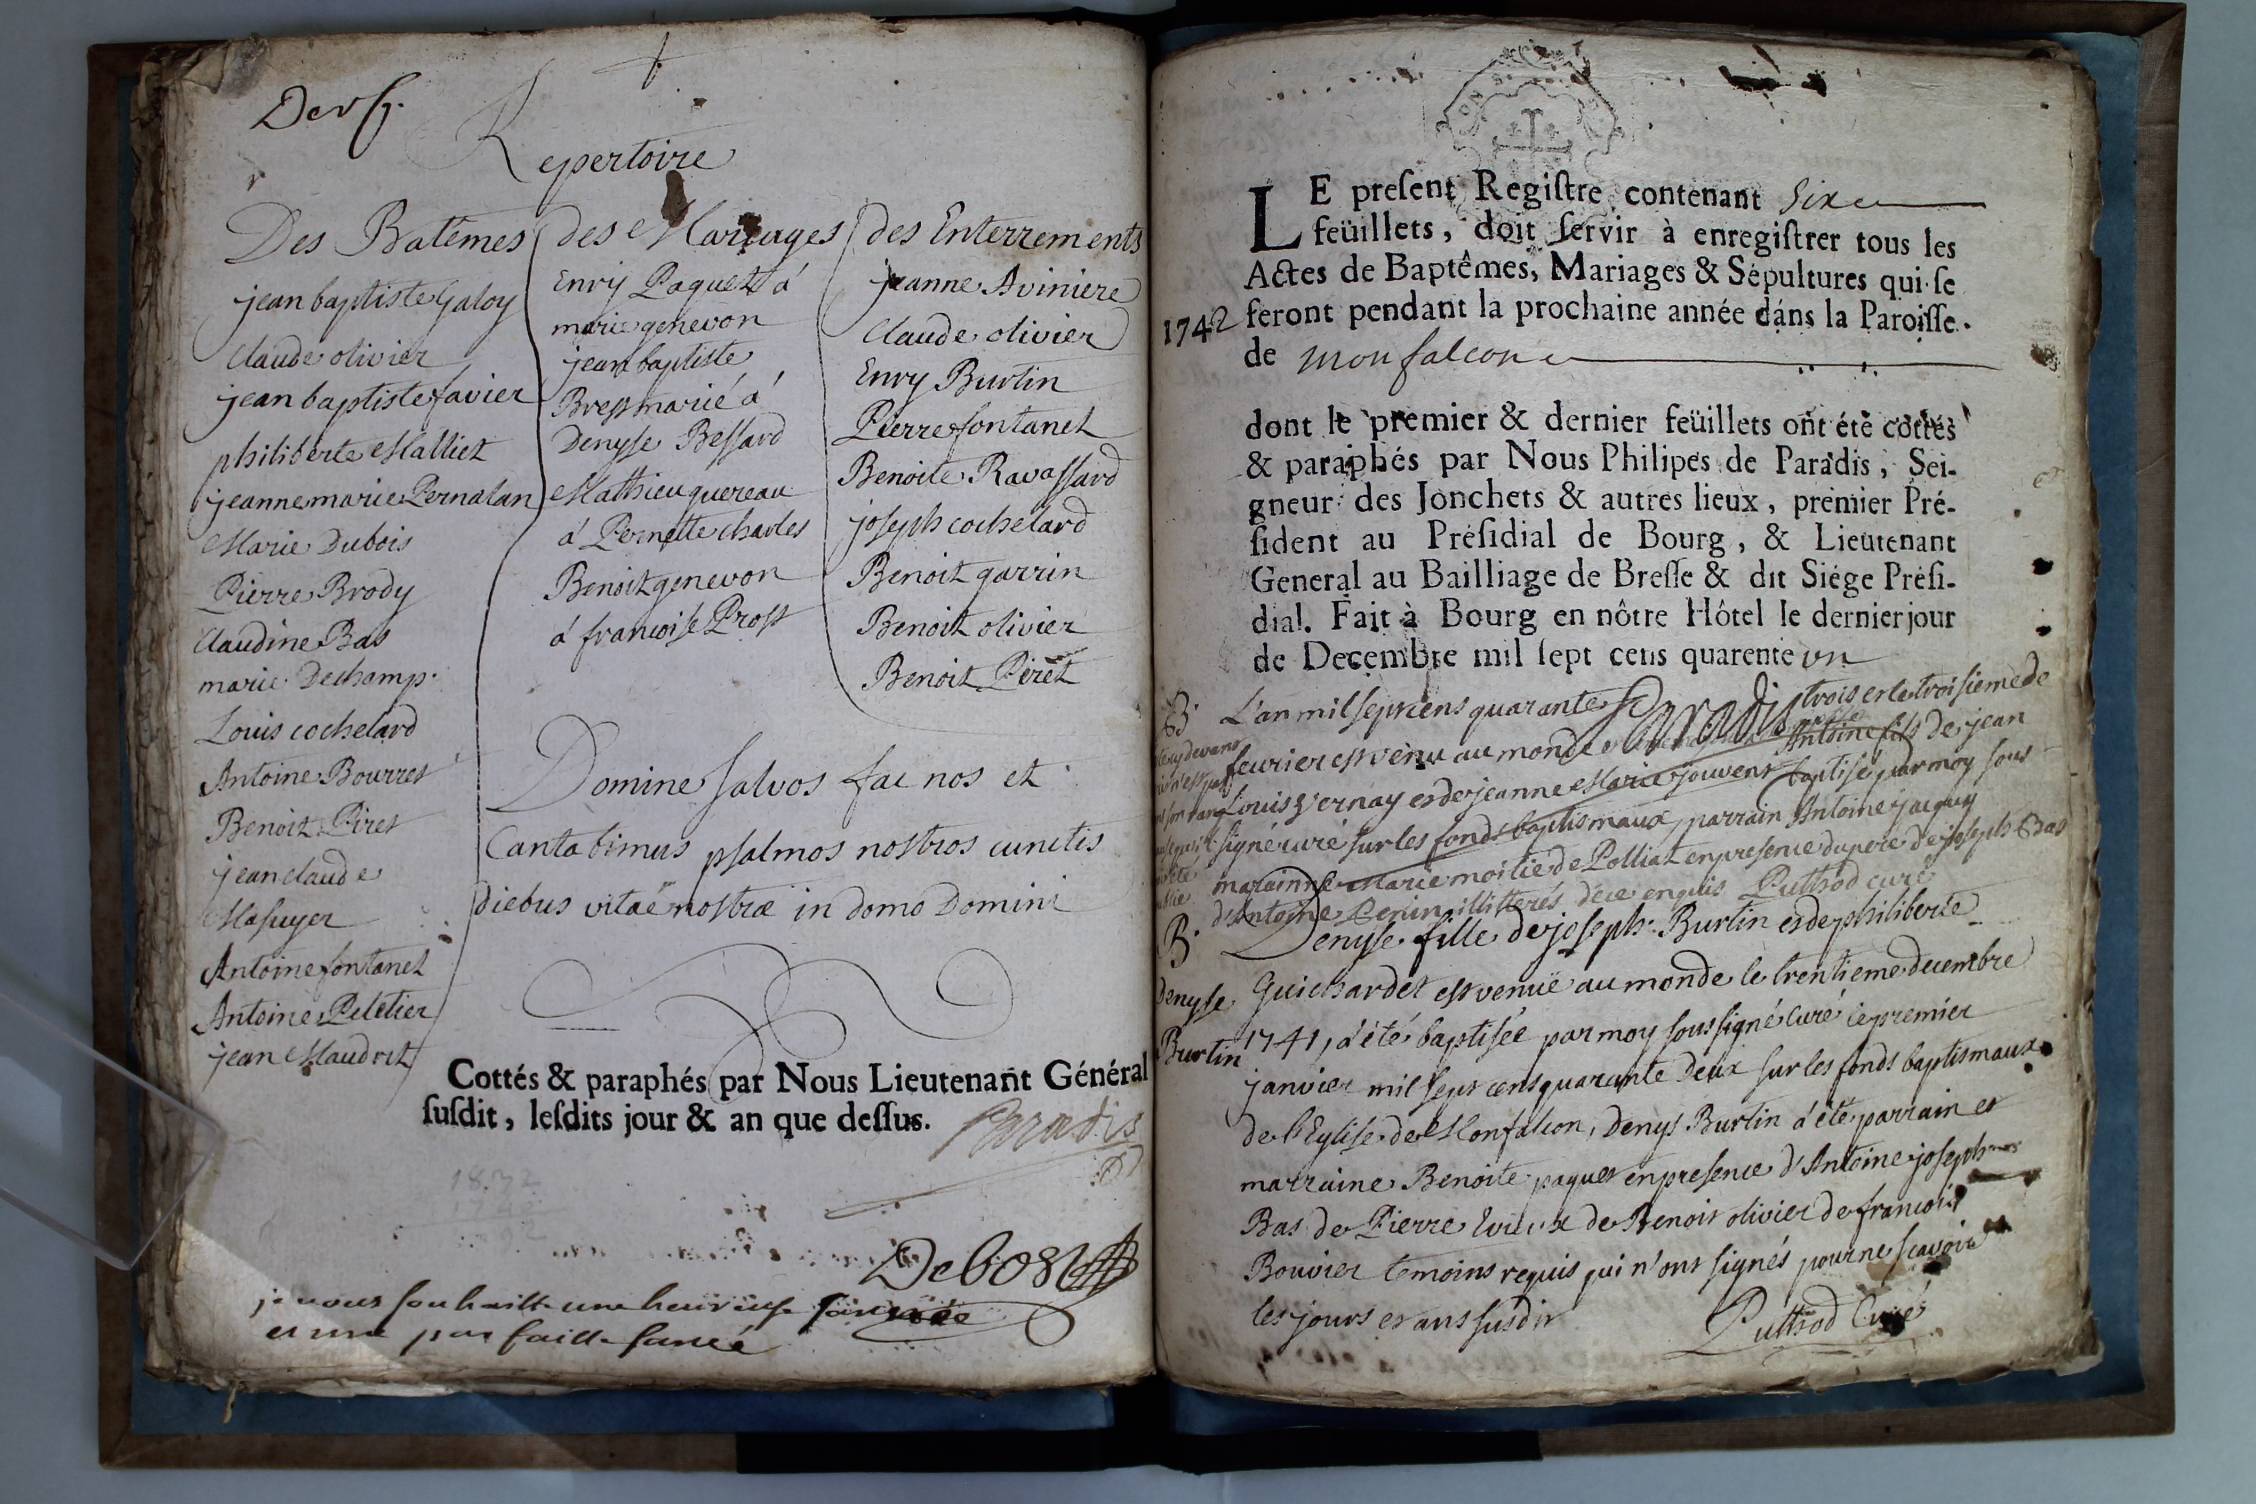 Repertoire
Des Batêmes
jean baptiste Galoy
Claude olivier
jean baptiste favier
philiberte Malliet
jeanne marie Pernatan
Marie Dubois
Pierre Brody
Claudine Bas
marie Dechamp.
Louis cochelard
Antoine Bourret
Benoit Piret
jean claude
Masuyer
Antoine fontanet
Antoine Peletier
jean Maudrit
des Mariages
Envy Paquet á
marie genevon
jean baptiste
Bress marié á
Denyse Bessard
Mathieu quereau
á Pernette charles
Benoit genevon
á francoise Prost
des Enterrements
jeanne Aviniere
Claude olivier
Envy Burtin
Pierre fontanet
Benoite Ravassard
joseph cochelard
Benoit garrin
Benoit olivier
Benoit Piret
Domine salvos fac nos et
Cantabimus psalmos nostros cunctis
diebus vitae nostræ in domo Domini
Cottés & paraphés par Nous Lieutenant Général
susdit, lesdits jour & an que dessus.
Paradis
Debost
je vous souhaitte une heureuse
et une parfaitte santé
LE present Registre contenant Six
feüillets, doit servir à enregistrer tous les
Actes de Baptêmes, Mariages & Sépultures qui se
1742 feront pendant la prochaine année dans la Paroisse.
de monfalcon
dont le premier & dernier feüillets ont été cottés
& paraphés par Nous Philipes de Paradis, Sei-
gneur des Jonchets & autres lieux, premier Pré-
sident au Présidial de Bourg, & Lieutenant
General au Bailliage de Bresse & dit Siége Prési-
dial. Fait à Bourg en nôtre Hôtel le dernier jour
de Decembre mil sept cens quarente un
Paradis
B. L'an mil sept cens quarante trois et le troisieme de
feurier est venu au monde Antoine fils de jean
Louis Vernay et de jeanne Marie jouvent baptisé par moy sous
signé curé sur les fonds baptismaux, parrain Antoine jacquy
marainne Marie moitié de Polliat en presence du pere de joseph Bas
d'Antoine Perin illitterés de ce enquis Puthod curé
B. Denyse fille de joseph Burtin et de philiberte
Denyse Guichardet est venuë au monde le trentieme decembre
Burtin 1741, á été baptisée par moy soussigné Curé ce premier
janvier mil sept cens quarante deux sur les fonds baptismaux
de l'Eglise de Monfalcon, Denys Burtin á été parrain et
marraine Benoite paquet en presence d'Antoine joseph
Bas de Pierre de Benoit olivier de francois
Bouvier temoins requis qui n'ont signés pour ne scavoir
les jours et ans susdit
Puthod Curé